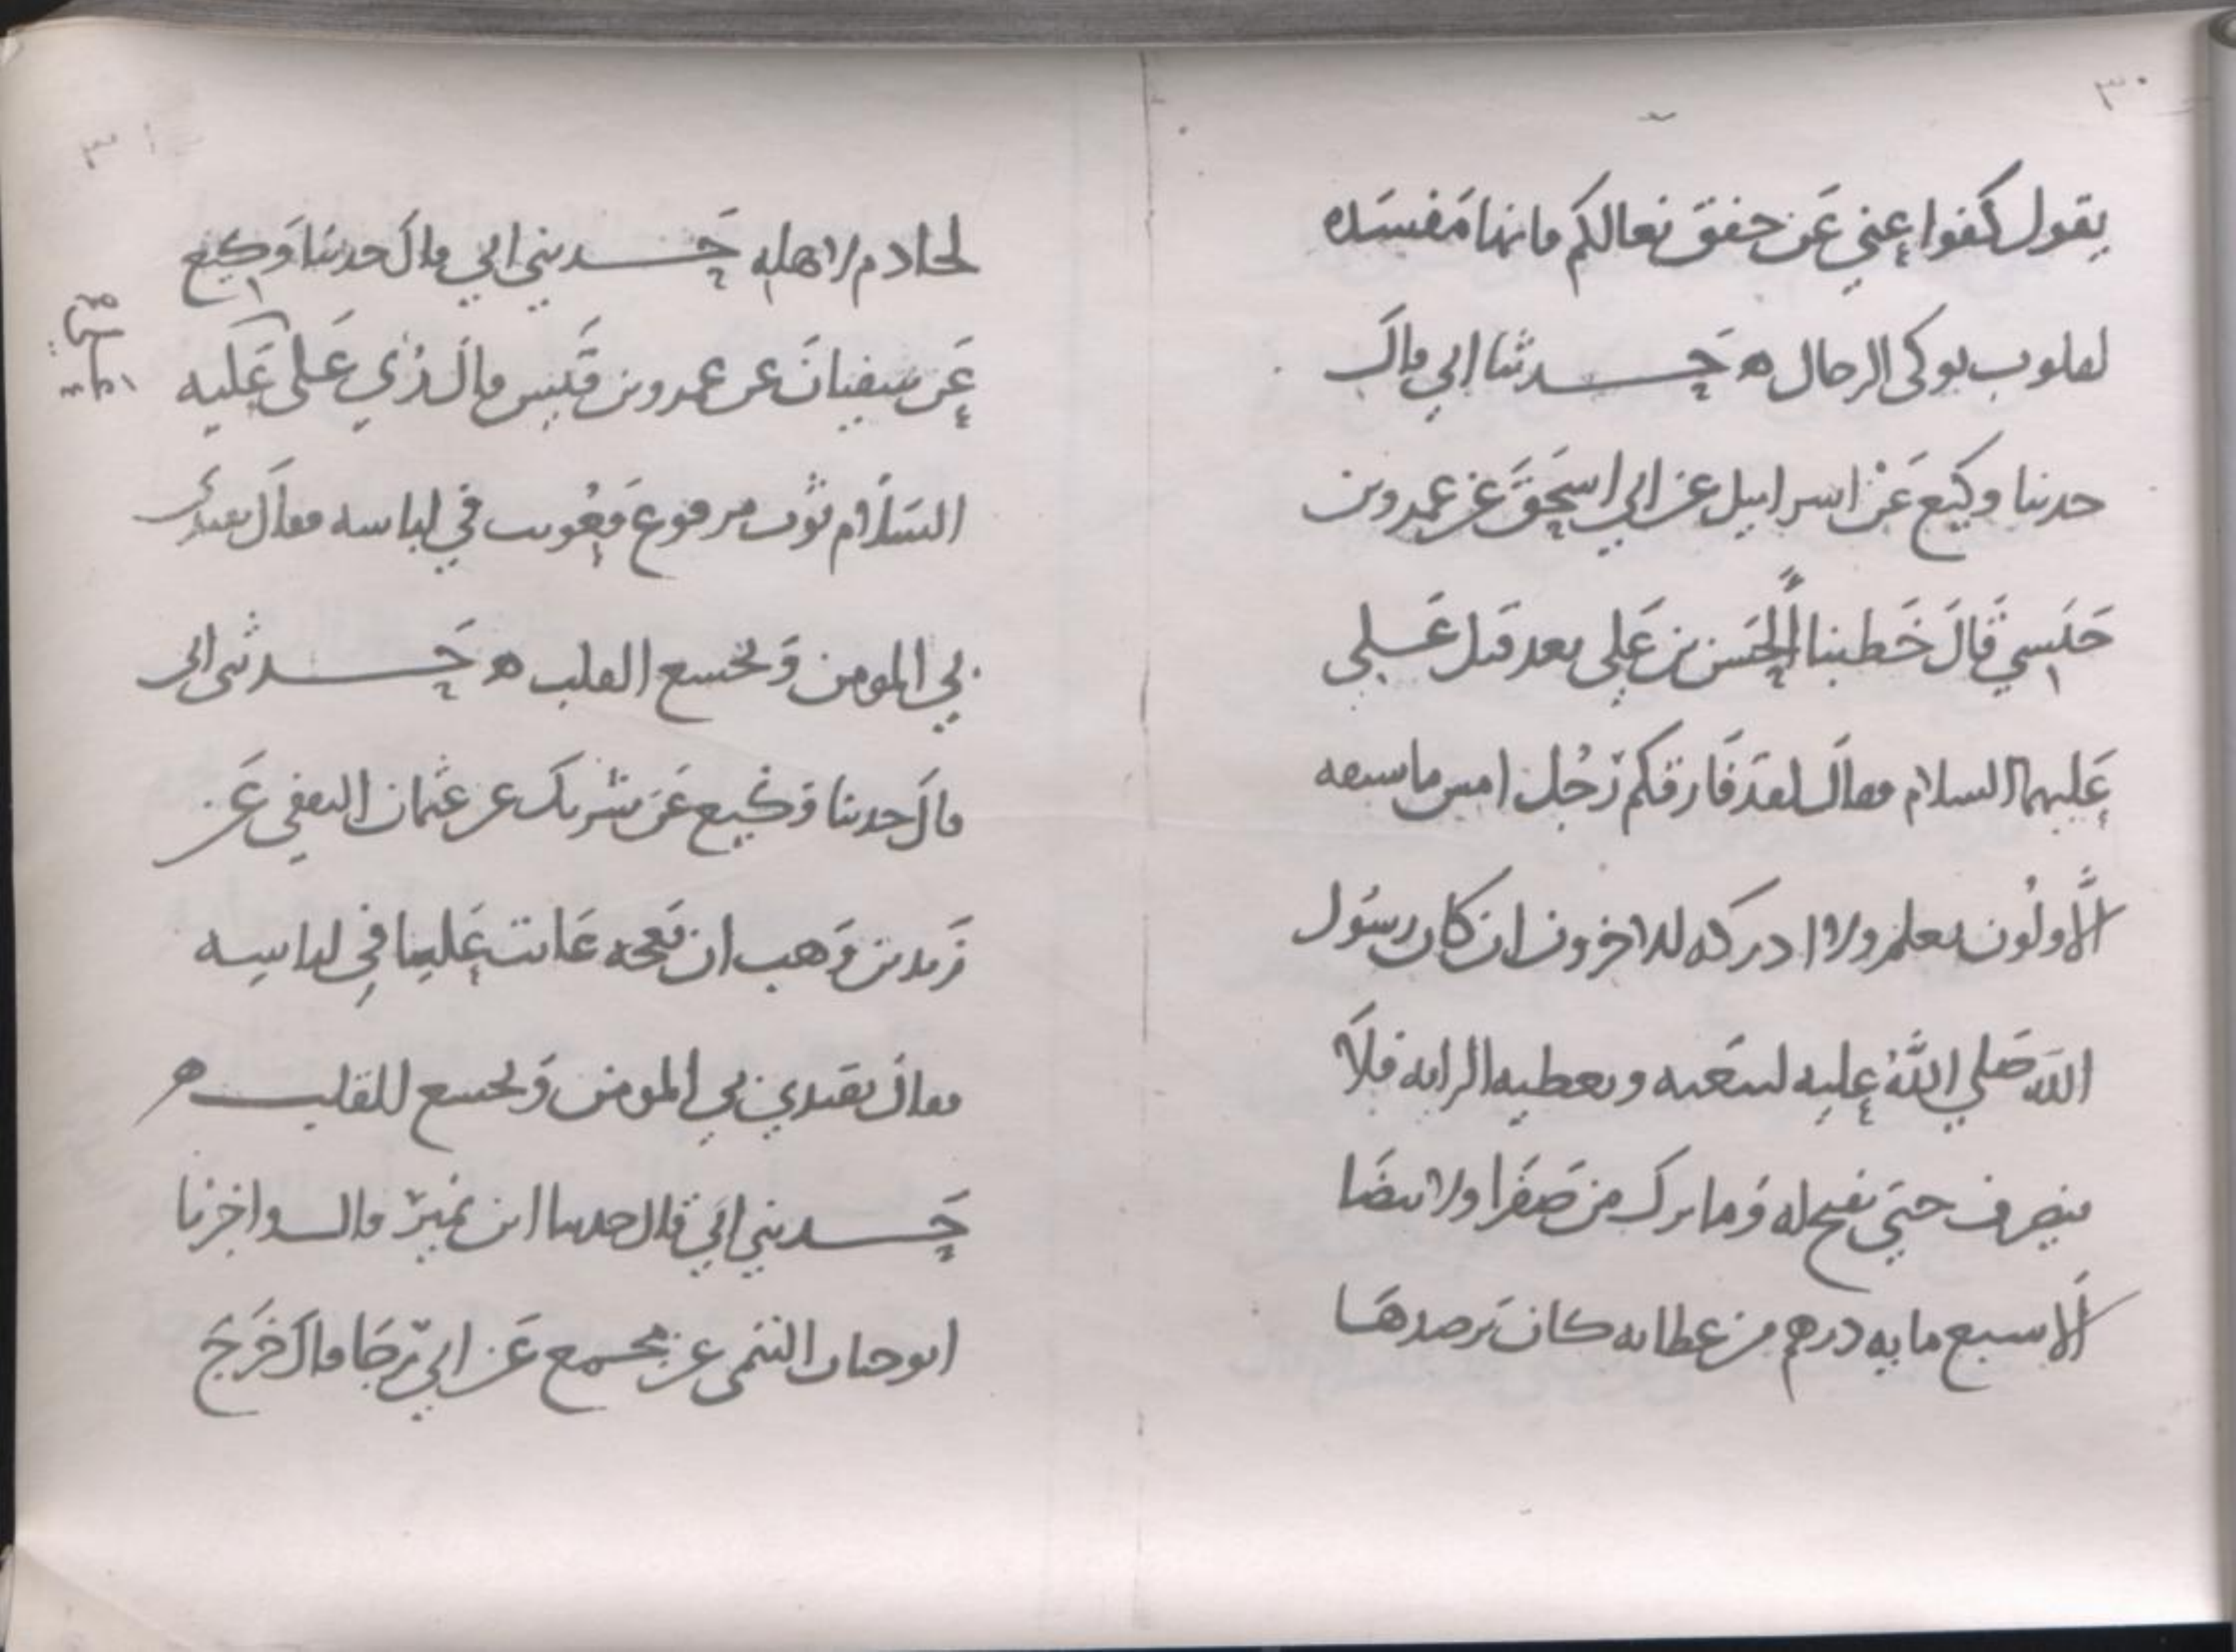 ٣٠
يقول كفوا عني عن خفق نعالكم فانها مفسده
لقلوب نوكى الرجال ه حدثنا ابي قال
حدثنا وكيع عن اسراييل عن ابي اسحق عن عمرو بن
حبشي قال خطبنا الحسن بن علي بعد قتل علي
عليهما السلام فقال لقد فارقكم رجل امس ما سبقه
الاولون بعلم ولا ادركه الاخرون ان كان رسول
الله صلى الله عليه ليبعثه ويعطيه الرايه فلا
ينصرف حتى يفتح له وما ترك من صفرا ولا بيضا
الا سبع مايه درهم من عطايه كان يرصدها
٣١
لخادم لاهله حدثني ابي قال حدثنا وكيع
عن سفيان عن عمرو بن قيس قال رُئي على علي عليه
السلام ثوب مرقوع فعوتب في لباسه فقال يقتدي
بي المومن ويخشع القلب ه حدثني ابي
قال حدثنا وكيع عن شريك عن عثمان الثقفي عن
زيد بن وهب ان بعجه عاتب عليا في لباسه
فقال يقتدي بي المومن ويخشع القلب ه
حدثني ابي قال حدثنا ابن نمير قال اخبرنا
ابو حيان التيمي عن مجمع عن ابي رجا قال خرج